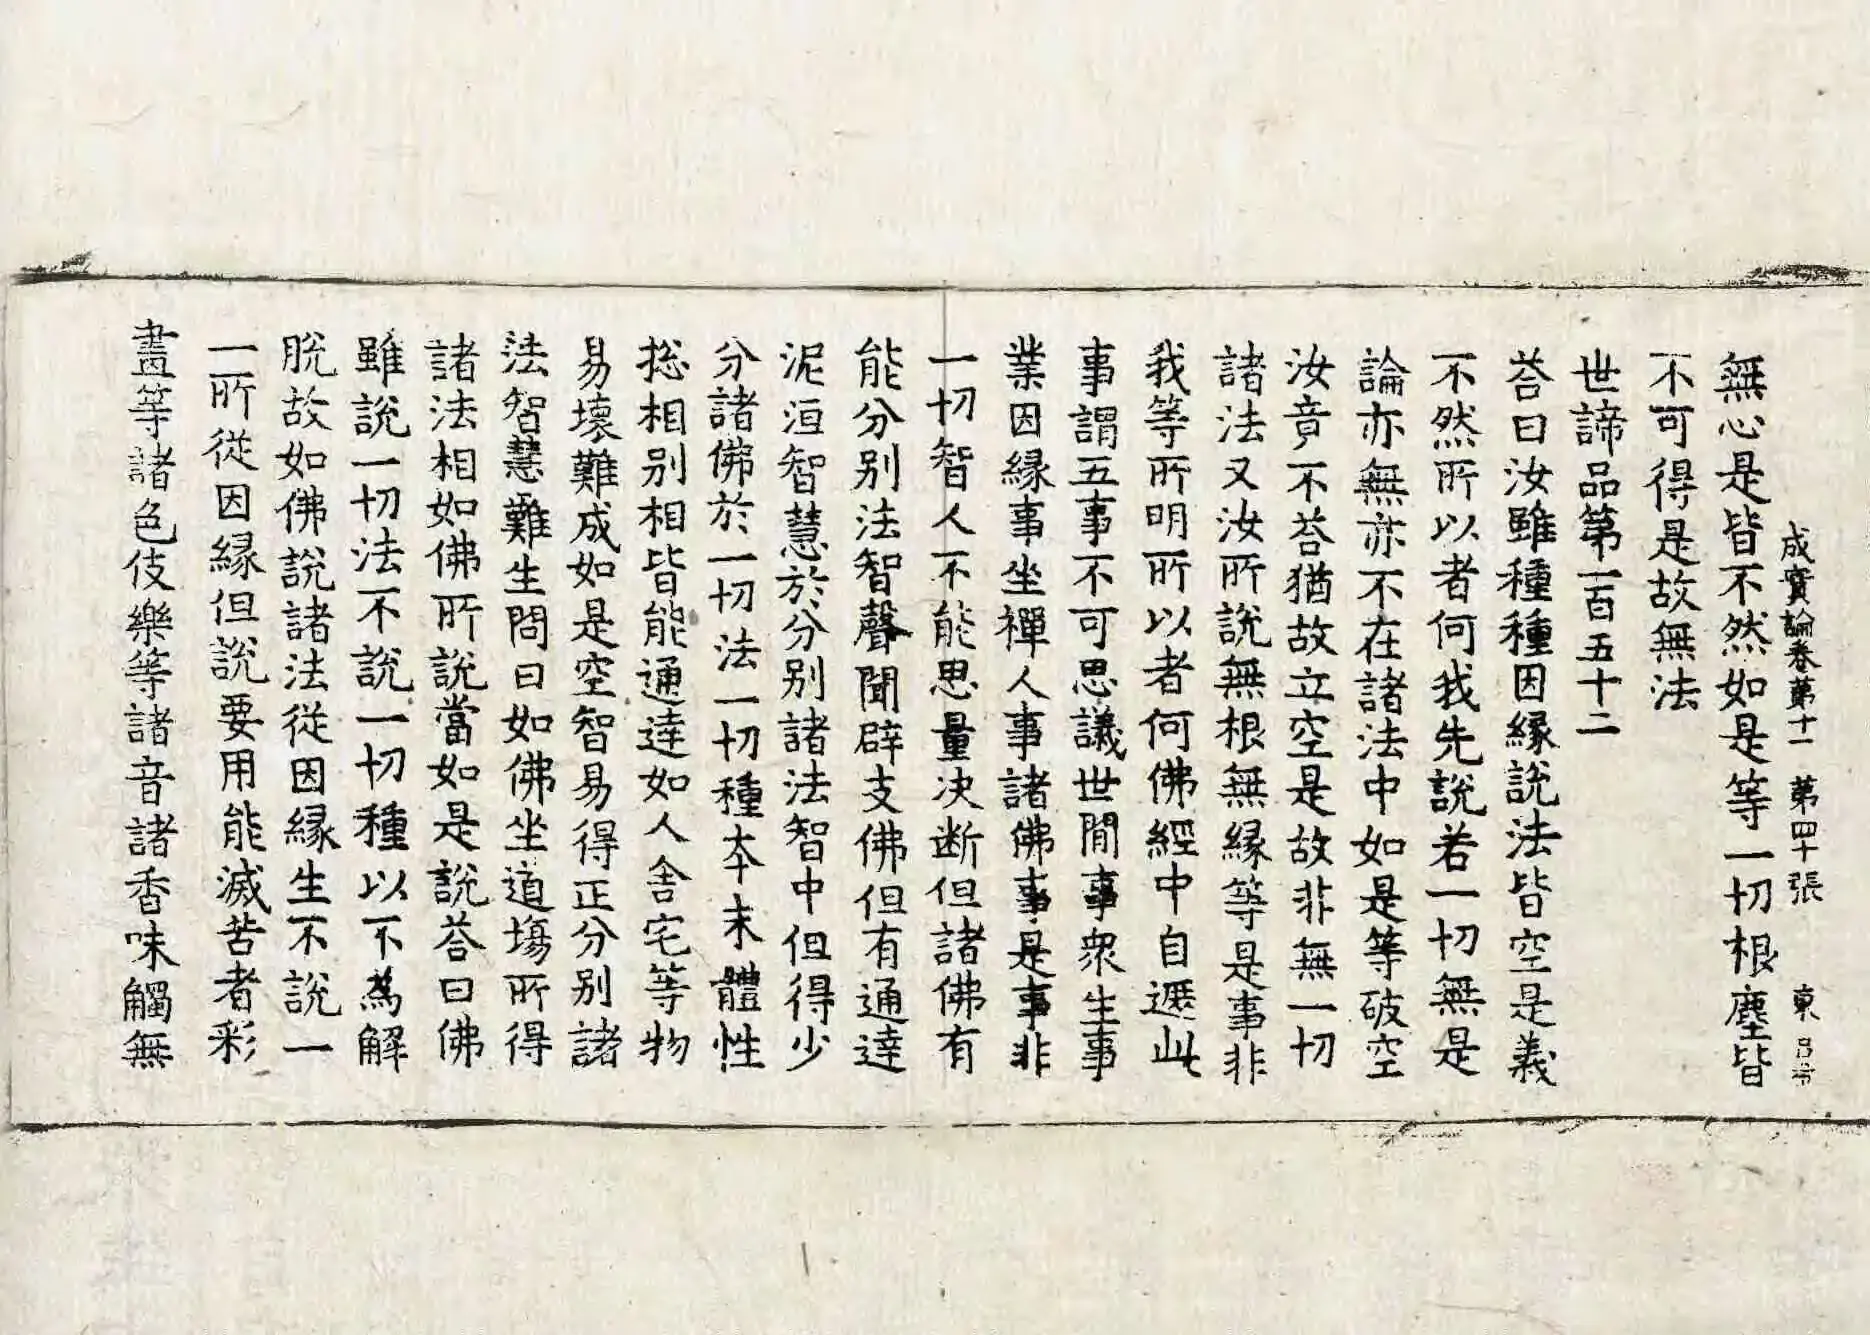 成實論卷第十一 第四十張 東 呂
無心是皆不然如是等一切根塵皆
不可得是故無法
世諦品第一百五十二
荅曰汝雖種種因緣說法皆空是義
不然所以者何我先說若一切無是
論亦無亦不在諸法中如是等破空
汝竟不荅猶故立空是故非無一切
諸法又汝所說無根無緣等是事非
我等所明所以者何佛經中自遮此
事謂五事不可思議世間事衆生事
業因緣事坐禪人事諸佛事是事非
一切智人不能思量决断但諸佛有
能分別法智聲聞辟支佛但有通達
泥洹智慧於分別諸法智中但得少
分諸佛於一切法一切種本末體性
捴相別相皆能通達如人舍宅等物
易壞難成如是空智易得正分別諸
法智慧難生問曰如佛坐道塲所得
諸法相如佛所說當如是說荅曰佛
雖說一切法不說一切種以不爲解
脫故如佛說諸法從因緣生不說一
一所從因緣但說要用能滅苦者彩
畫等諸色伎樂等諸音諸香味觸無